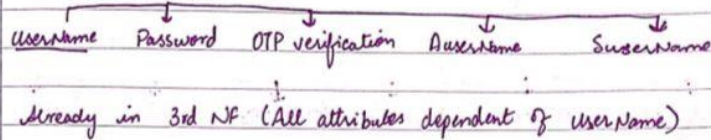 UserName Password OTP verification AuserName SuserName
Already in 3rd NF (All attributes dependent of UserName)